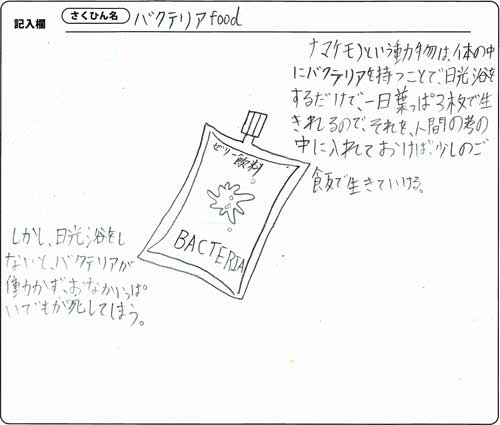 記入欄
さくひん名
バクテリアfood
ナマケモノという動物は、体の中
にバクテリアを持つことで、日光浴を
するだけで、一日葉っぱ3枚で生
きれるので、それを、人間の考の
中に入れておけば、少しのご
飯で生きていける。
ゼリー飲料
BACTERIA
しかし、日光浴をし
ないと、バクテリアが
働かず、おなかいっぱ
いでもが死してしまう。